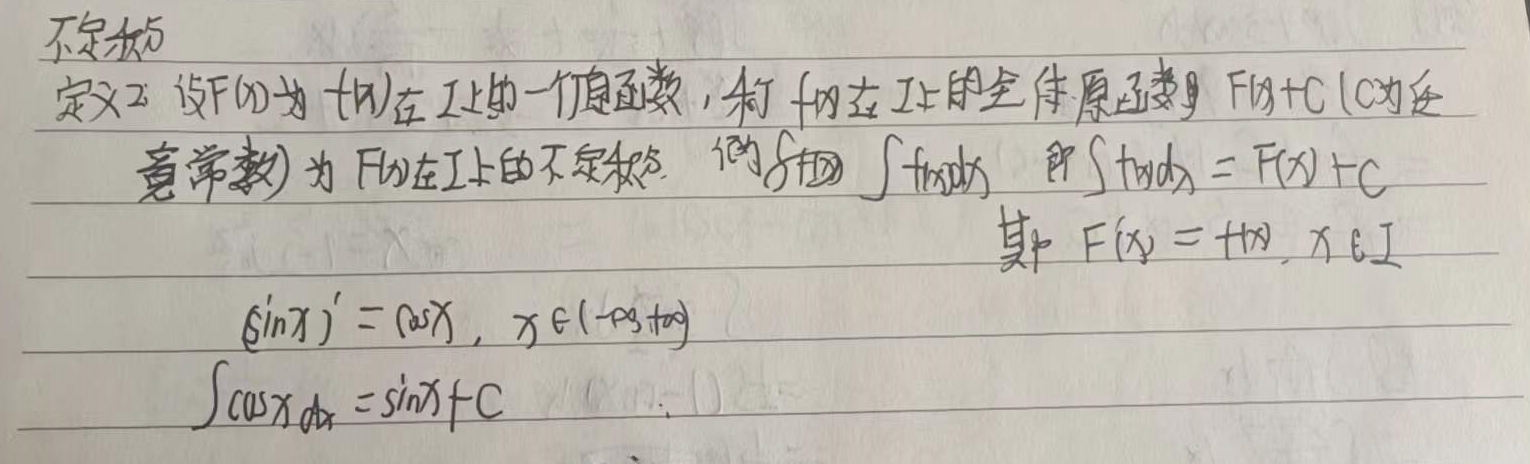 不定积分
定义2 设F(x)为f(x)在I上的一个原函数,称f(x)在I上的全体原函数 F(x)+C (C为任
意常数) 为F(x)在I上的不定积分. 记为 ∫f(x)dx 即∫f(x)dx = F(x)+C
其中 F(x) = f(x), x∈I
(sinx)' = cosx, x∈(-∞,+∞)
∫cosxdx = sinx+C